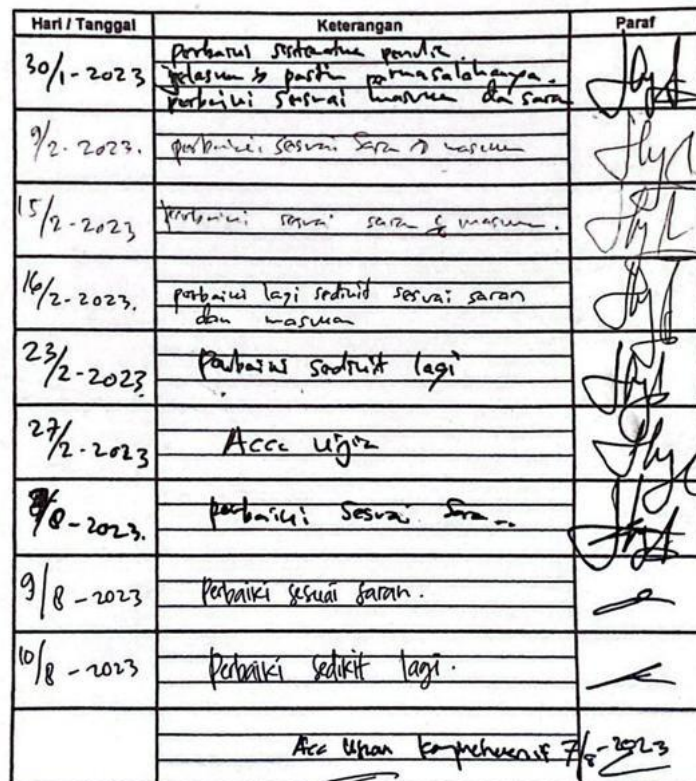 Hari / Tanggal Keterangan Paraf
30/1-2023 perbaiki sistematika penulis
jelaskan pastikan permasalahannya.
perbaiki sesuai masukan dan saran
9/2-2023. perbaiki sesuai saran masukan
15/2-2023 perbaiki sesuai saran & masukan.
16/2-2023. perbaiki lagi sedikit sesuai saran
dan masukan
23/2-2023. perbaiki sedikit lagi
27/2-2023 Acc ujian
8-2023. perbaiki sesuai saran
9/8-2023 Perbaiki sesuai saran.
10/8-2023 Perbaiki sedikit lagi.
Acc Ujian komprehensif 7/8-2023